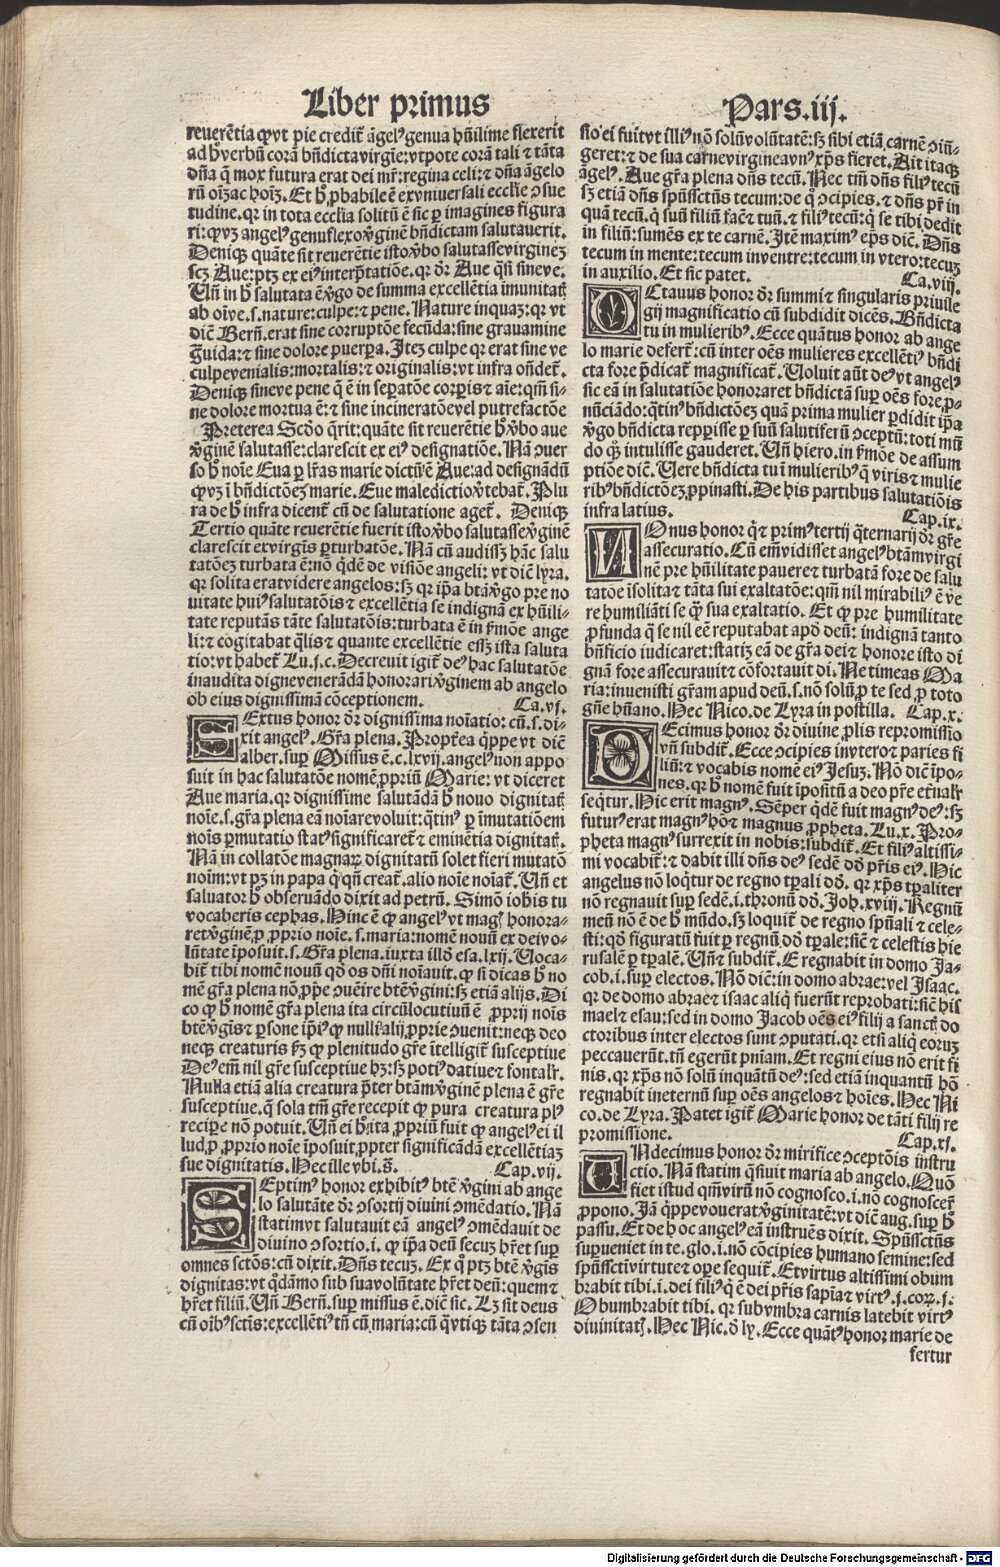 Liber primus
Pars.iij.
reuerētia qvt pie credit̄ āgelꝰ genua hūilime flexerit
ad hͦ verbū corā bn̄dicta virgīe: vtpote corā tali ⁊ tāta
dn̄a q̄ mox futura erat dei mr̄: regina celi: ⁊ dn̄a āgelo
rū oīꝫac hoīꝫ. Et hͦ ꝓbabile ē ex vniuersali ecclīe ↄsue
tudine. qꝛ in tota ecclīa solitū ē sic ꝑ imagines figura
ri: ꝙ vꝫ angelꝰ genuflexo v̄ginē bn̄dictam salutauerit.
Deniqꝫ quāte sit reuerētie isto v̄bo salutasse virgineꝫ
scꝫ Aue: ptꝫ ex eiꝰ interp̄tatiōe. qꝛ dr̄ Aue q̄si sine ve.
Un̄ in hͦ salutata ē v̄go de summa excellētia imunitat̄
ab oī ve. s. nature: culpe: ⁊ pene. Nature inquaꝫ: qꝛ vt
diē Berñ. erat sine corruptōe fecūda: sine grauamine
grauida: ⁊ sine dolore puerpa. Iteꝫ culpe qꝛ erat sine ve
culpe venialis: mortalis: ⁊ originalis: vt infra ondet̄.
Deniqꝫ sine ve pene q̄ ē in sepatōe corpis ⁊ aīe: qm̄ si-
ne dolore mortua ē: ⁊ sine incineratōe vel putrefactōe
Preterea Scdo q̄rit: quāte sit reuerētie hͦ v̄bo aue
v̄ginē salutasse: clarescit ex eiꝰ designatiōe. Nā ↄuer
so hͦ noīe Eua ꝑ lr̄as marie dictū ē Aue: ad designādū
ꝙ vꝫ ī bn̄dictōeꝫ marie. Eue maledictio v̄tebat̄. Plu
ra de hͦ infra dicent̄ cū de salutatione aget̄. Deniqꝫ
Tertio quāte reuerētie fuerit isto v̄bo salutasse v̄ginē
clarescit ex virgīs ꝑturbatōe. Nā cū audissꝫ hāc salu
tatōeꝫ turbata ē: nō qͥdē de visiōe angeli: vt diē lyra.
qꝛ solita erat videre angelos: sꝫ qꝛ ip̄a btā v̄go pre no
uitate huiꝰ salutatōis ⁊ excellētia se indignā ex hūili-
tate reputās tāte salutatōis: turbata ē in ẜmōe ange
li: ⁊ cogitabat q̄lis ⁊ quante excellētie essꝫ ista saluta
tio: vt habet̄ Lu.j.c. Decreuit igit̄ deꝰ hac salutatōe
inaudita digne venerādā honorari v̄ginem ab angelo
ob eius dignissimā cōceptionem. Ca.vj.
SExtus honor dr̄ dignissima noīatio: cū. s. di-
xit angelꝰ. Gr̄a plena. Propr̄ea q̄ppe vt diē
alber. suꝑ Missus ē. c. lxvij. angelꝰ non appo
suit in hac salutatōe nomē ꝓpriū Marie: vt diceret
Aue maria. qꝛ dignissime salutādā hͦ nouo dignitat̄
noīe. s. gr̄a plena eā noīare voluit: q̄tinꝰ ꝑ īmutatiōem
noīs ꝑmutatio statꝰ significaret̄ ⁊ eminētia dignitat̄.
Nā in collatōe magnaꝝ dignitatū solet fieri mutatō
noīm: vt pꝫ in papa q̄ qn̄ creat̄. alio noīe noīat̄. Un̄ et
saluator hͦ obseruādo dixit ad petrū. Simō iohis tu
vocaberis cephas. Hinc ē ꝙ angelꝰ vt magꝭ honora-
ret v̄ginē, ꝓ ꝓprio noīe. s. maria: nomē nouū ex dei vo-
lūtate īposuit. s. Gr̄a plena. iuxta illd̄ esa. lxij. Uoca-
bit̄ tibi nomē nouū qd̄ os dn̄i noīauit. ꝙ si dicas hͦ no
mē gr̄a plena nō, ꝓpe ↄuēire btē v̄gini: sꝫ etiā alijs. Di
co ꝙ hͦ nomē gr̄a plena ita circūlocutiuū ē ꝓprij noīs
btē v̄gīs ⁊ ꝑsone ip̄iꝰ ꝙ nulli alij ꝓprie ↄuenit: neqꝫ deo
neqꝫ creaturis ẜꝫ ꝙ plenitudo gr̄e ītelligit̄ susceptiue
Deꝰ em̄ nil gr̄e susceptiue hꝫ: sꝫ potiꝰ datiue ⁊ fontalr̄.
Nulla etiā alia creatura p̄ter btām v̄ginē plena ē gr̄e
susceptiue. q̄ sola tm̄ gr̄e recepit ꝙ pura creatura plꝰ
recipe nō potuit. Un̄ ei hͦ ita ꝓpriū fuit ꝙ angelꝰ ei il
lud, ꝓ ꝓprio noīe īposuit, ꝓpter significādā excellētiaꝫ
sue dignitatis. Hec ille vbi.s̄. Cap.vij.
SEptimꝰ honor exhibitꝰ btē v̄gini ab ange
lo salutāte dr̄ ↄsortij diuini ↄmēdatio. Nā
statim vt salutauit eā angelꝰ ↄmēdauit de
diuino ↄsortio. i. ꝙ ip̄a deū secuꝫ hr̄et suꝑ
omnes sctōs: cū dixit. Dn̄s tecuꝫ. Ex qͦ ptꝫ btē v̄gīs
dignitas: vt qͦdāmo sub sua volūtate hr̄et deū: quem ⁊
hr̄et filiū. Un̄ Berñ. suꝑ missus ē. diē sic. Lꝫ sit deus
cū oībꝰ sctīs: excellētiꝰ tn̄ cū maria: cū qͣ vtiqꝫ tāta ↄsen
sio ei fuit vt illiꝰ nō solū volūtatē: sꝫ sibi etiā carnē ↄiū-
geret: ⁊ de sua carne virginea vnꝰ xp̄s fieret. Ait itaqꝫ
āgelꝰ. Aue gr̄a plena dn̄s tecū. Nec tm̄ dn̄s filiꝰ tecū
sꝫ etiā dn̄s spūssctūs tecum: de qͦ ↄcipies. ⁊ dn̄s pr̄ in
quā tecū. q̄ suū filiū facē tuū. ⁊ filiꝰ tecū: q̄ se tibi dedit
in filiū: sumēs ex te carnē. Itē maximꝰ ep̄s diē. Dn̄s
tecum in mente: tecum in ventre: tecum in vtero: tecuꝫ
in auxilio. Et sic patet. Ca.viij.
OCtauus honor dr̄ summi ⁊ singularis priuile
gij magnificatio cū subdidit dicēs. Bn̄dicta
tu in mulieribꝰ. Ecce quātus honor ab ange
lo marie defert̄: cū inter oēs mulieres excellētiꝰ bn̄di
cta fore p̄dicat̄ magnificat̄. Uoluit aūt deꝰ vt angelꝰ
sic eā in salutatiōe honoraret bn̄dictā suꝑ oēs fore, ꝓ-
nūciādo: q̄tinꝰ bn̄dictōeꝫ quā prima mulier ꝑdidit ip̄a
v̄go bn̄dicta repperisse ꝑ suū salutiferū ↄceptū: toti mū
do qꝫ intulisse gauderet. Un̄ hiero. in ẜmōe de assum
ptiōe diē. Uere bn̄dicta tu ī mulieribꝰ q̄ viris ⁊ mulie
ribꝰ bn̄dictōeꝫ ꝓpinasti. De his partibus salutatiōis
infra latius. Cap.ix.
NOnus honor q̄ ⁊ primꝰ tertij q̄ternarij dr̄ gr̄e
assecuratio. Cū em̄ vidisset angelꝰ btām virgi
nē pre hūilitate pauere ⁊ turbatā fore de salu
tatōe īsolita ⁊ tāta sui exaltatōe: qm̄ nil mirabiliꝰ ē ve
re humiliāti se q̄ sua exaltatio. Et ꝙ pre humilitate
ꝓfunda q̄ se nil eē reputabat apd̄ deū: indignā tanto
bn̄ficio iudicaret: statiꝫ eā de gr̄a dei ⁊ honore isto di
gnā fore assecurauit ⁊ cōfortauit di. Ne timeas Ma
ria: inuenisti gr̄am apud deū. s. nō solū ꝓ te sed ꝓ toto
gn̄e hūano. Hec Nico. de Lyra in postilla. Cap.x.
DEcimus honor dr̄ diuine ꝓlis repromissio
vn̄ subdit̄. Ecce ↄcipies in vtero ⁊ paries fi
liū: ⁊ vocabis nomē eiꝰ Jesuꝫ. Nō diē īpo-
nes. qꝛ hͦ nomē fuit īpositū a deo pr̄e et̄nalr̄
seqͥtur. Hic erit magnꝰ. Sēper qͥdē fuit magnꝰ deꝰ: sꝫ
futurꝰ erat magnꝰ hō ⁊ magnus ꝓpheta. Lu.x. Pro-
pheta magnꝰ surrexit in nobis: subdit̄. Et filiꝰ altissi-
mi vocabit̄: ⁊ dabit illi dn̄s deꝰ sedē dd̄ pr̄is eiꝰ. Hic
angelus nō loq̄tur de regno tꝑali dd̄. qꝛ xp̄s tꝑaliter
nō regnauit suꝑ sedē. i. thronū dd̄. Joh. xviij. Regnū
meū nō ē de hͦ mūdo. sꝫ loquit̄ de regno spūali ⁊ cele-
sti: qd̄ figuratū fuit ꝑ regnū dd̄ tꝑale: sicē ⁊ celestis hie
rusalē ꝑ tꝑalē. Un̄ ⁊ subdit̄. Et regnabit in domo Ja-
cob. i. suꝑ electos. Nō diē: in domo abrae: vel Isaac.
qꝛ de domo abrae ⁊ isaac aliq̄ fuerūt reprobati: sicē his
mael ⁊ esau: sed in domo Jacob oēs eiꝰ filij a sanctꝭ do
ctoribus inter electos sunt ↄputati. qꝛ etsi aliq̄ eoruꝫ
peccauerūt. tn̄ egerūt pn̄iam. Et regni eius nō erit fi
nis. qꝛ xp̄s nō solū inquātū deꝰ: sed etiā inquantū hō
regnabit in eternū suꝑ oēs angelos ⁊ hoīes. Hec Ni
co. de Lyra. Patet igit̄ Marie honor de tāti filij re
promissione. Cap.xj.
UNdecimus honor dr̄ mirifice ↄceptōis instru
ctio. Nā statim q̄siuit maria ab angelo. Quō
fiet istud qm̄ virū nō cognosco. i. nō cognoscer̄
ꝓpono. Jā q̄ppe vouerat v̄ginitatē: vt diē aug. suꝑ hͦ
passu. Et de hͦ angelꝰ eā instruēs dixit. Spūssctūs
suꝑueniet in te. glo. i. nō cōcipies humano semine: sed
spūsscti virtute ⁊ oꝑe sequit̄. Et virtus altissimi obum
brabit tibi. i. dei filiꝰ q̄ ē dei pr̄is sapīa ⁊ virtꝰ. j. coꝝ. j.
Obumbrabit tibi. qꝛ sub vmbra carnis latebit virtꝰ
diuinitatꝭ. Hec Nic. d̄ ly. Ecce quātꝰ honor marie de
fertur
Digitalisierung gefördert durch die Deutsche Forschungsgemeinschaft - DFG